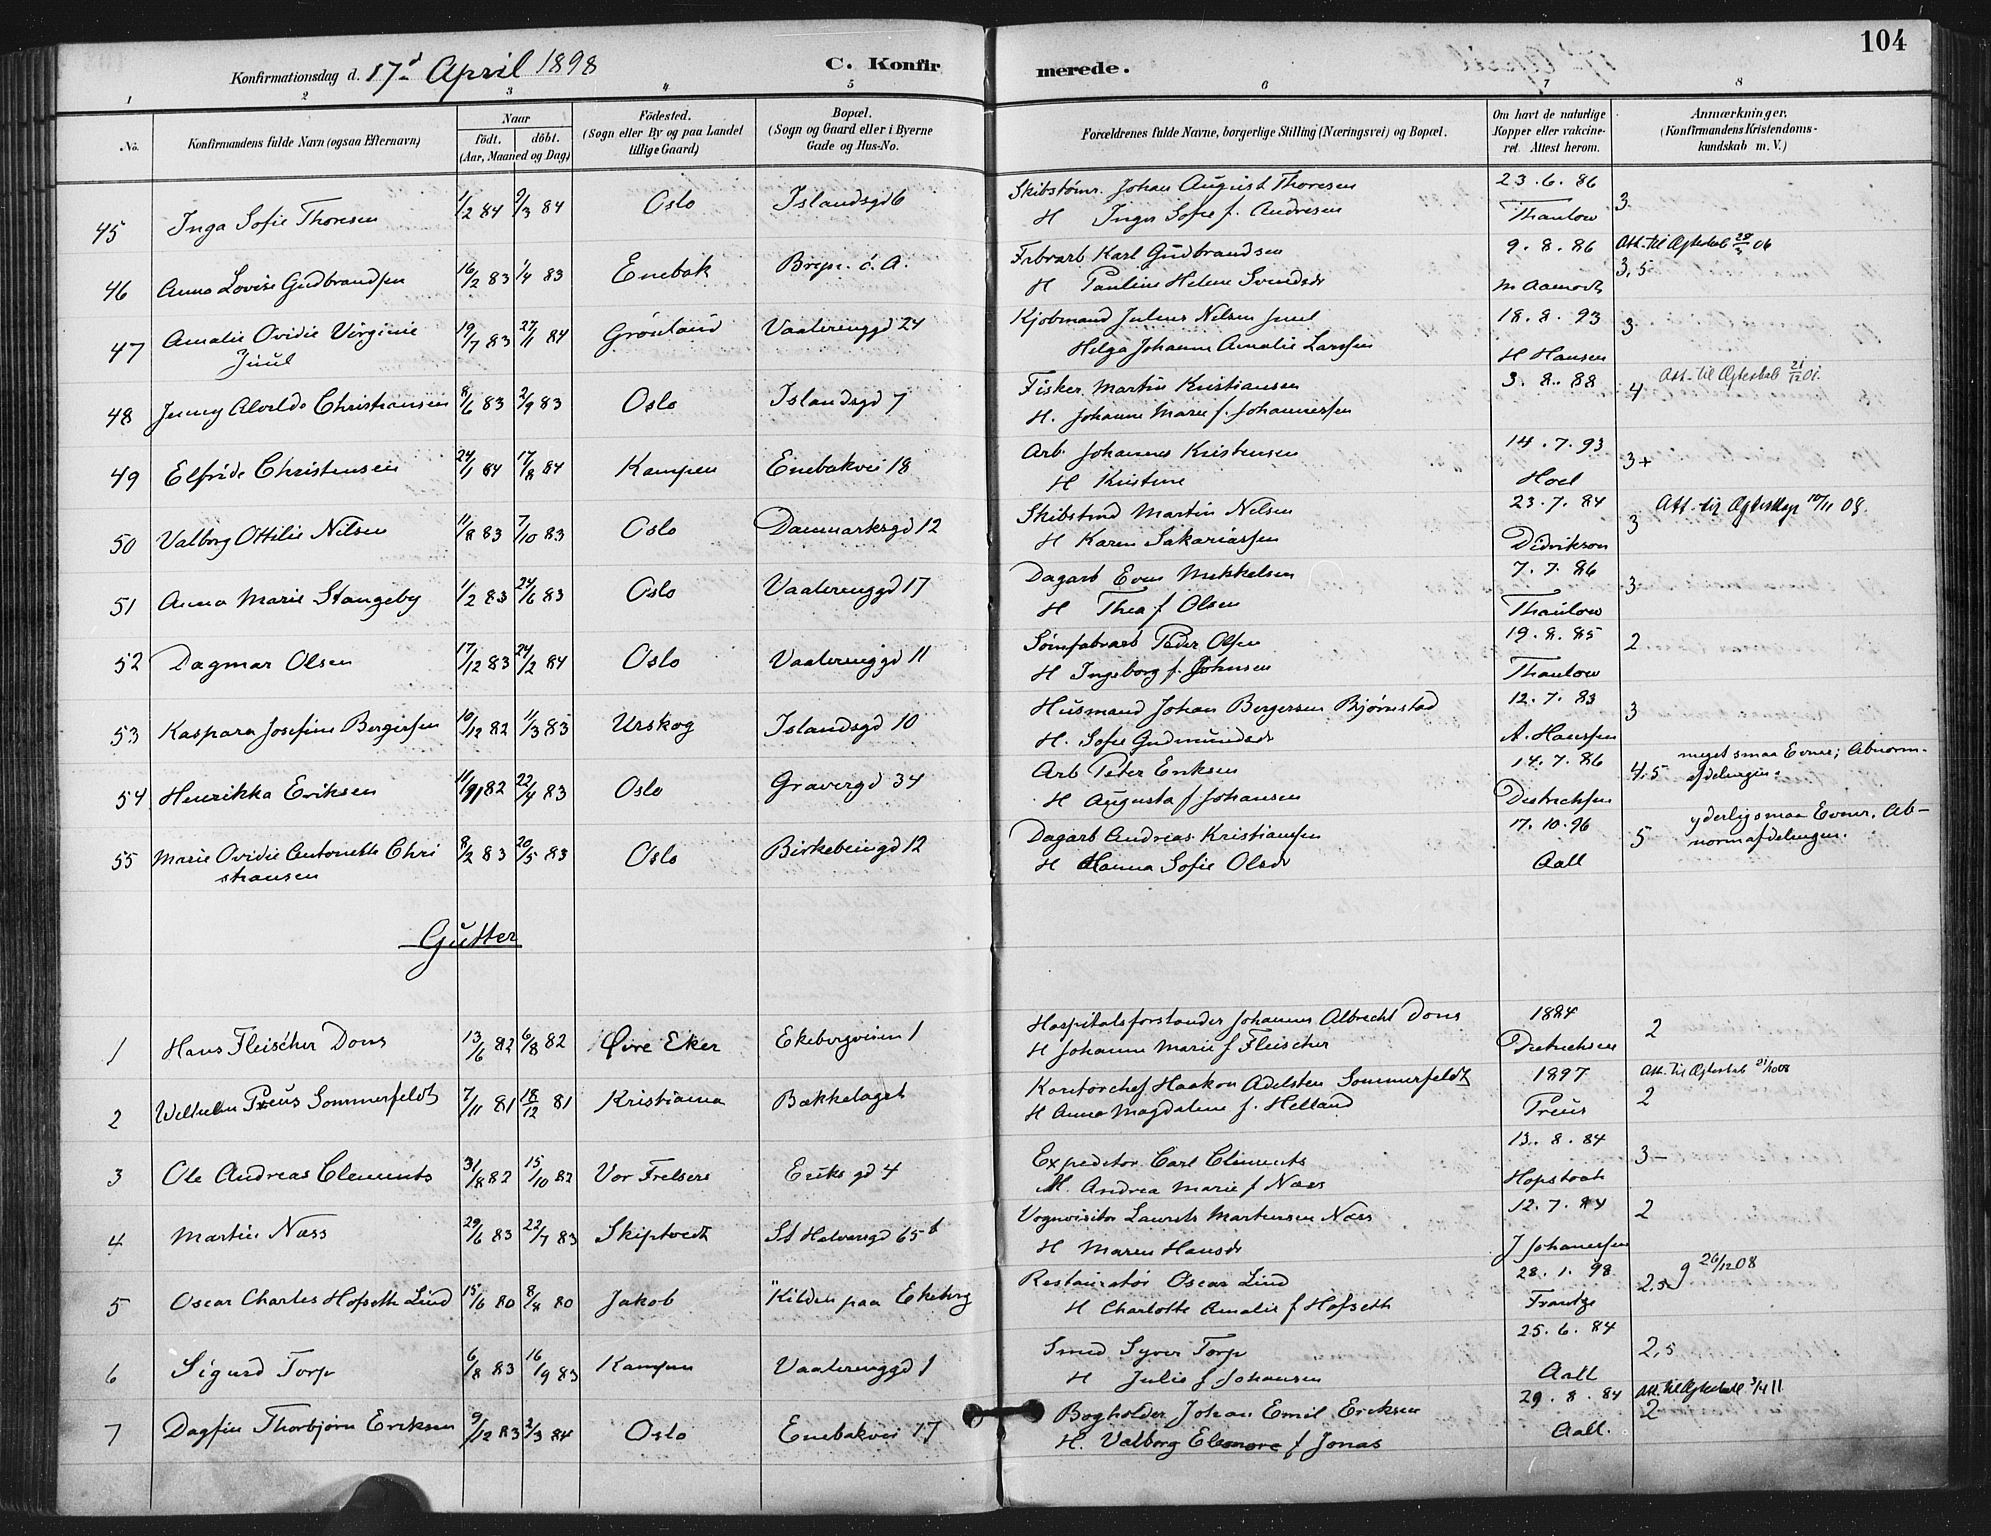 104
Konfirmationsdag d. 17d April 1898 C. Konfirmerede.
1 2 3 4 5 6 7 8
No. Konfirmandens fulde Navn (ogsaa Efternavn) Naar født. døbt. (Aar, Maaned og Dag) Födested. (Sogn eller By og paa Landet tillige Gaard) Bopæl. (Sogn og Gaard eller i Byerne Gade og Hus-No. Forældrenes fulde Navne, borgerlige Stilling (Næringsvei) og Bopæl. Om havt de naturlige Kopper eller vakcineret. Attest herom. Anmærkninger. (Konfirmandens Kristendomskundskab m. V.)
45 Inga Sofie Thoresen 1/2 84 9/3 84 Oslo Islandsgd 6 Skibstømr. Johan August Thoresen 23.6.86 3
H Inger Sofie f. Andresen Thaulow
46 Anna Lovise Gudbrandsen 16/2 83 1/4 83 Enebak Karl Gudbrandsen 9.8.86 Att. til Ægteskab 06
H Pauline Helene Svendsdr M Aamodt 3,5
47 Amalie Ovidie Virginie 19/7 83 27/1 84 Grønland Vaalerenggd 24 Kjøbmand Julius Nilsen Juul 18.8.93 3
Juul Helga Johanne Amalie Larssen H Hansen
48 Jenny Alvilde Christiansen 8/6 83 2/9 83 Oslo Islandsgd 7 Fisker Martin Kristiansen 3.8.88 4 Att. til Ægteskab 21/12 01.
H. Johanne Marie f. Johannessen
49 Elfride Christensen 24/1 84 17/8 84 Kampen Enebakvei 18 Arb Johannes Kristensen 14.7.93 3+
H Kristine Hoel
50 Valborg Ottilie Nilsen 11/8 83 7/10 83 Oslo Danmarksgd 12 Skibstmd Martin Nilsen 23.7.84 3 Att. til Ægteskap 10/11 08.
H Karen Sakariassen Didrikson
51 Anna Marie Stangeby 1/2 83 24/6 83 Oslo Vaalerenggd 17 Dagarb Even Mikkelsen 7.7.86 3
H Thea f Olsen Thaulow
52 Dagmar Olsen 17/12 83 24/2 84 Oslo Vaalerenggd 11 Peder Olsen 19.8.85 2
H Ingeborg f. Johnsen Thaulow
53 Kaspara Josefine Bergersen 10/12 82 11/3 83 Urskog Islandsgd 10 Husmand Johan Bergersen Bjørnstad 12.7.83 3
H. Sofie Gudmundsdr A. Hanssen
54 Henrikka Eriksen 11/9 82 22/4 83 Oslo Gravergd 34 Arb Peter Eriksen 14.7.86 4,5 meget smaa Evner; Abnormafdelingen.
H Augusta f Johansen Dietrichsen
55 Marie Ovidie Antonette Chri 8/2 83 20/5 83 Oslo Birkebeingd 12 Dagarb Andreas Kristiansen 17.10.96 5 yderlig smaa Evner. Ab-
stiansen H Hanna Sofie Olsdr Aall normafdelingen.
Gutter
1 Hans Fleischer Dons 13/6 82 6/8 82 Øvre Eker Ekebergveien 1 Hospitalsforstander Johannes Albrecht Dons 1884 2
H Johanne Marie f Fleischer Dietrichsen
2 Wilhelm Preus Sommerfeldt 7/11 81 18/12 81 Kristiania Bækkelaget Kontorchef Haakon Adelsten Sommerfeldt 1897 Att. til Ægteskab 21/10 08
H Anna Magdalene f. Helland Preus 2
3 Ole Andreas Clements 31/8 82 15/10 82 Vor Frelsers Eriks gd 4 Expeditør Carl Clements 13.8.84 3-
M. Andrea Marie f Næss Hopstock
4 Martin Næss 29/6 83 22/7 83 Skiptvedt St Halvarsgd 65b Vognvisitør Laurits Martinsen Næss 12.7.84 2
H Maren Hansdr J Johanessen
5 Oscar Charles Hofseth Lind 15/6 80 8/8 80 Jakob "Kilden paa Ekeberg Restauratør Oscar Lind 28.1.98 2,5 g 26/12 08
H Charlotte Amalie f Hofseth Frantze
6 Sigurd Torp 6/8 83 16/9 83 Kampen Vaalerenggd 1 Smed Syver Torp 25.6.84 2,5
H Julie f Johansen Aall
7 Dagfin Thorbjørn Eriksen 9/12 83 2/3 84 Oslo Enebakvei 17 Bogholder Johan Emil Eriksen 29.8.84 Att. til Ægteskab 3/4 11
H. Valborg Elenore f Jonas Aall. 2